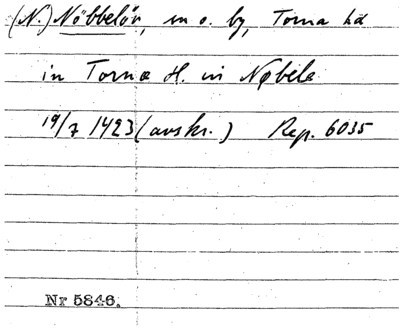 (N.) Nöbbelöv, sn o. by, Torna hd
in Tornæ H. in Nøbele
19/7 1423 (avskr.) Rep. 6035
Nr 5846.